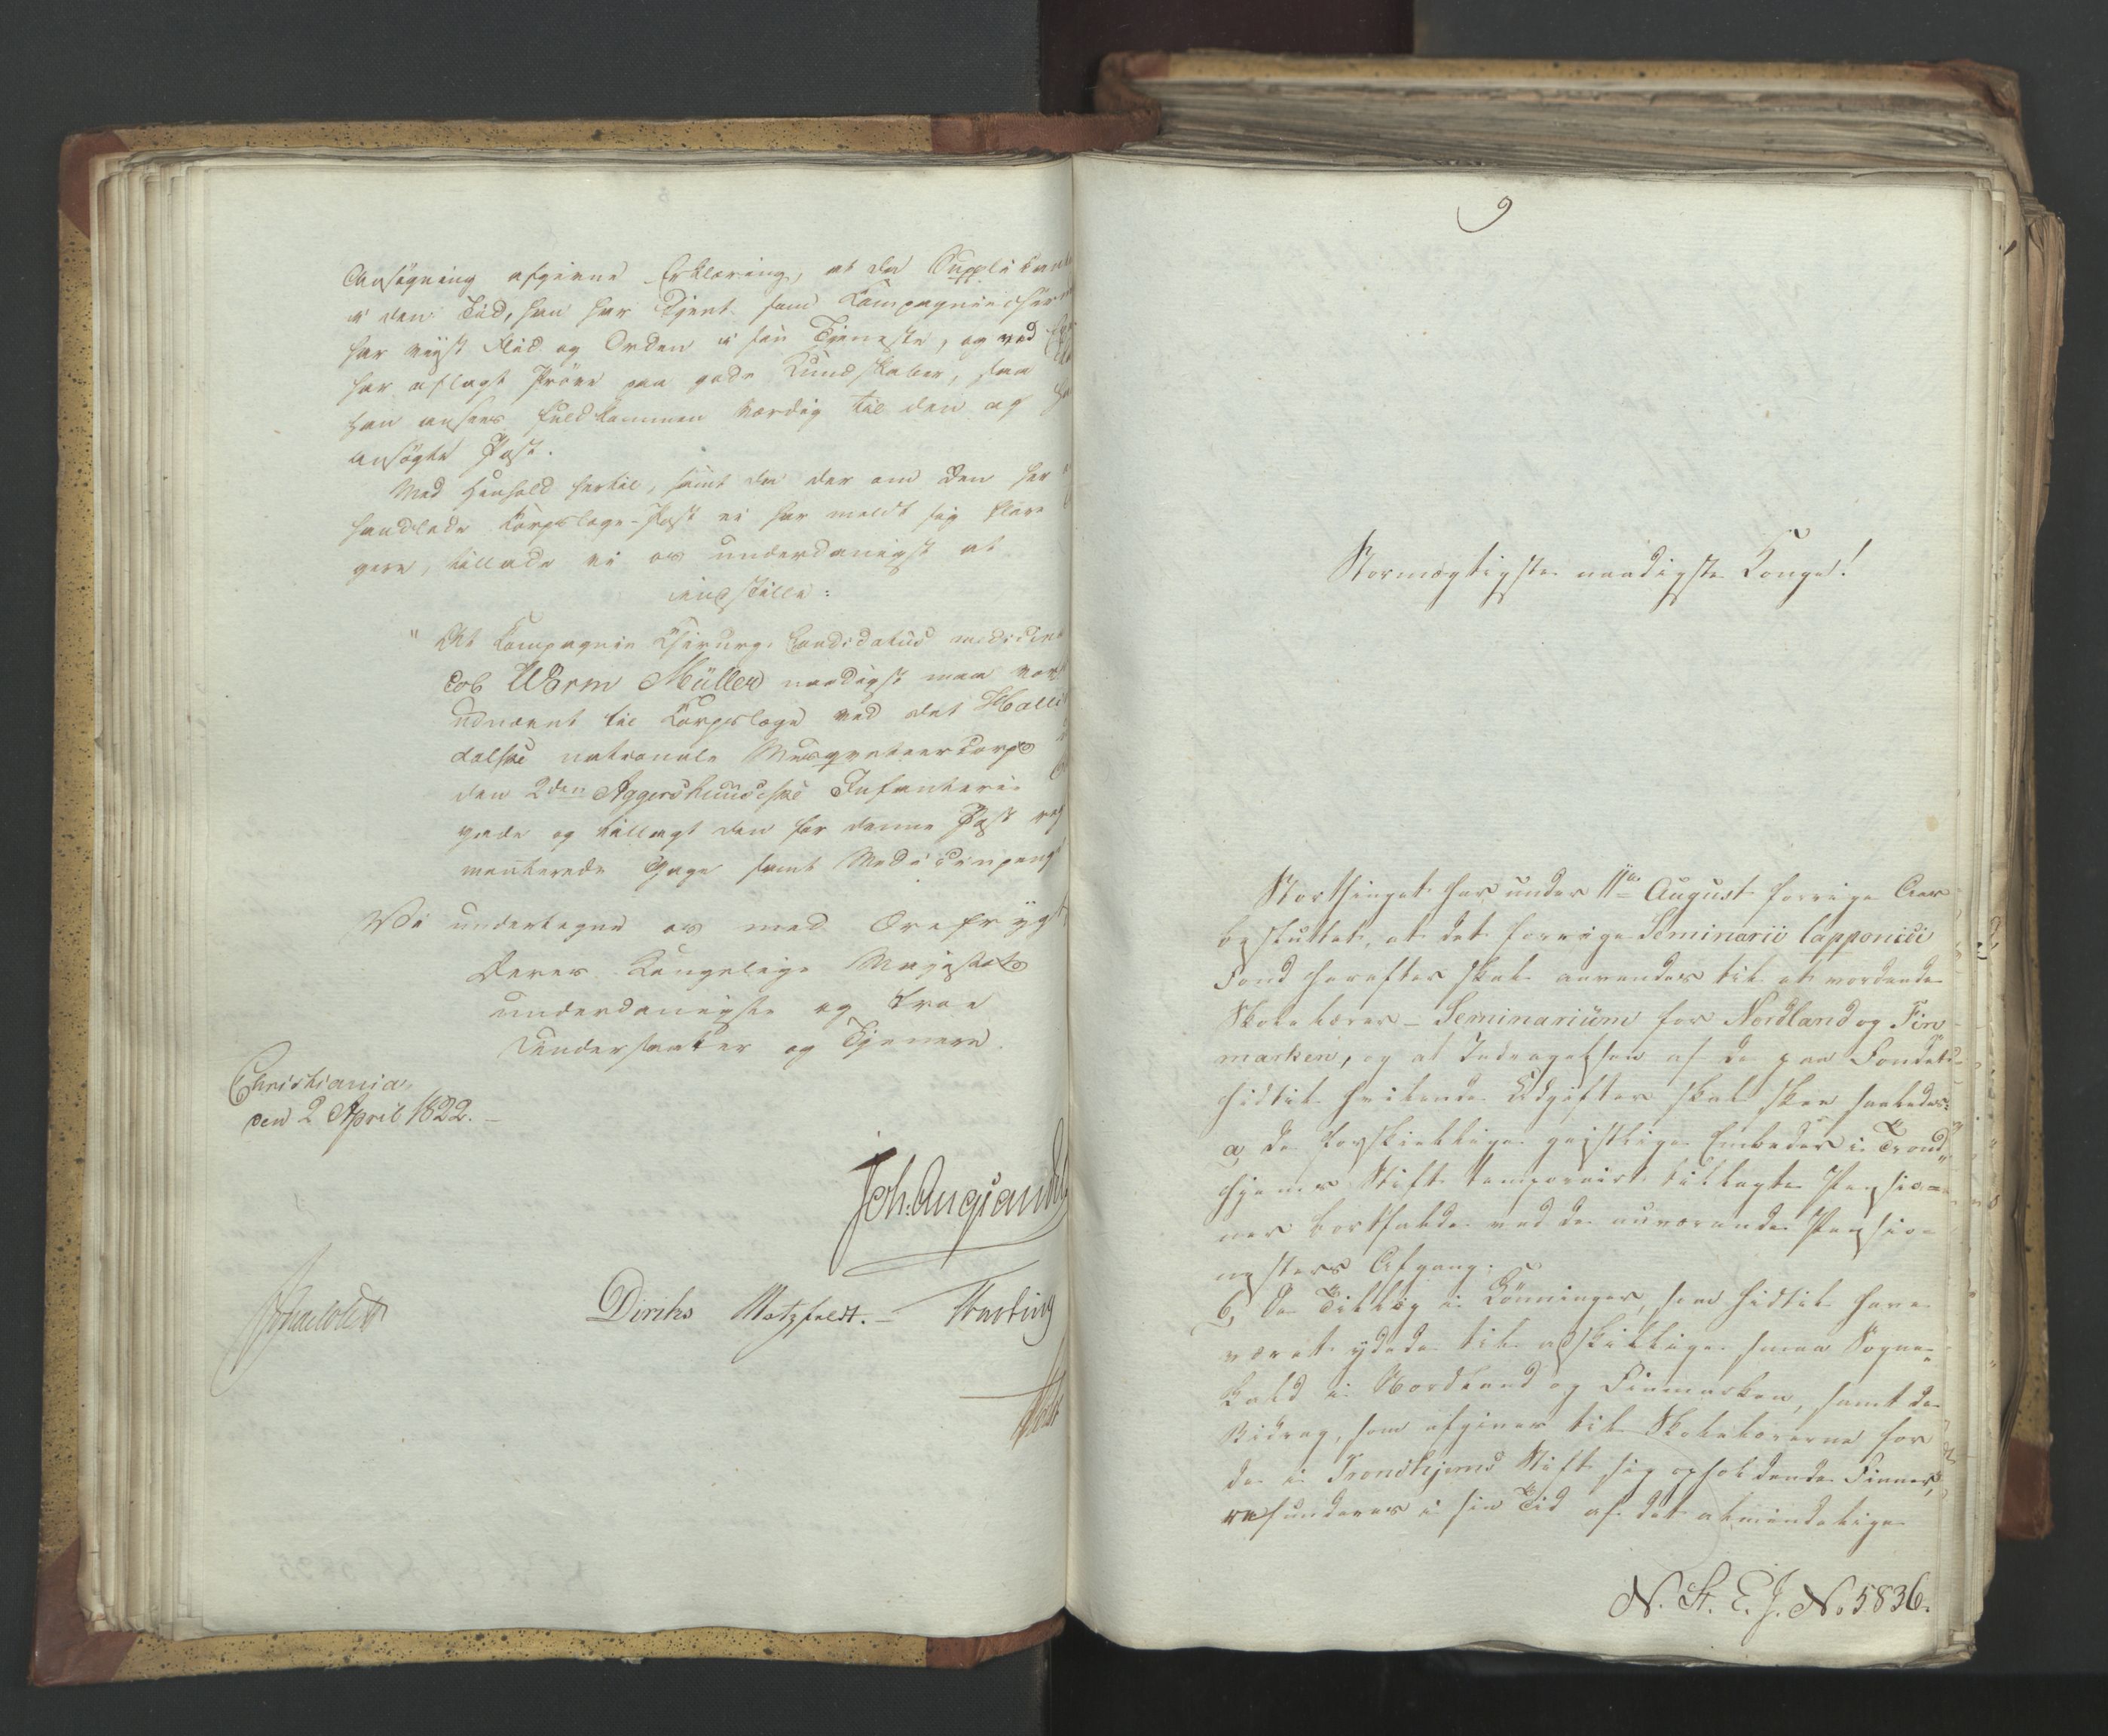 Ansøgning afgivne Erklæring, at da Supplikant
i den Tid, han har tjent som Kompagniechir
har viist Flid og Orden i sin Tjeneste, og ved
har aflagt Prøve paa gode Kundskaber, saa
han ansees fuldkommen værdig til den af
ansøgte Post.
Med Henhold hertil, samt da der om den her
handlede Korpslæge-Post ei har meldt sig flere
gere, tillade vi os underdanigst at
indstille:
" At Kompagnie Chirurg, Candidatus medicinæ
cob Worm Müller naadigst maa vor
udnævnt til Korpslæge ved det Halli
dalske nationale Musqueteercorps
den 2den Aggershuusiske Infanterie
gade og tillagt den for denne Post reg
menterede Gage samt Medicinpenge
Vi undertegne os med Ærefrygt
Deres Kongelige Majestæts
underdanigste og troe
Undersaatter og Tjenere.
Christiania,
den 2 April 1822. –
Joh. Aug. Sandels
Diriks Motzfeldt. – Fasting
9
Stormægtigste naadigste Konge!
Storthinget har under 11te August forrige Aar
besluttet, at det forrige Seminarii lapponici
Fond herefter skal anvendes til et vordende
Skolelærer – Seminarium for Nordland og Fin-
marken, og at Inddragelsen af de paa Fondet
hidtil hvilende Udgifter skal skee saaledes:
a, de forskiellige geistlige Embeder i Trond-
hjems Stift temporairt tillagte Pensio-
ner bortfalde ved de nuværende Pensio-
nisters Afgang.
b, De Tillæg i Lønninger, som hidtil have
været ydede til adskillige smaa Sogne-
kald i Nordland og Finmarken, samt de
Bidrag, som afgives til Skolelærerne for
de i Trondhjems Stift sig opholdende Finner,
refunderes i sin Tid af det almindelige
N. St. E. J. No 5836.